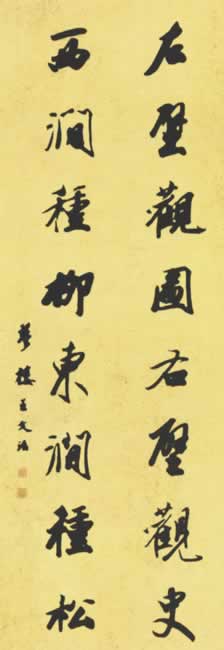 左壁觀圖右壁觀史
西澗種柳東澗種松
夢樓王文治